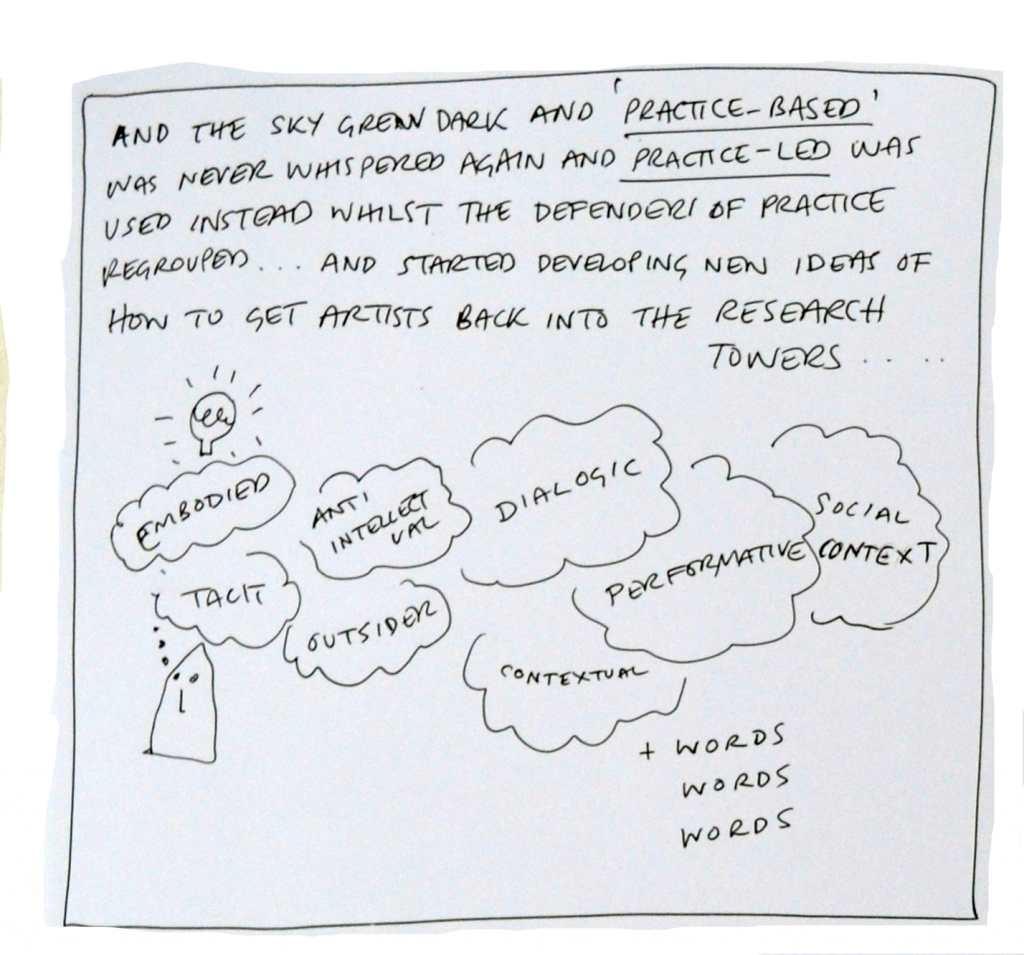 AND THE SKY GREW DARK AND 'PRACTICE-BASED'
WAS NEVER WHISPERED AGAIN AND PRACTICE-LED WAS
USED INSTEAD WHILST THE DEFENDERS OF PRACTICE
REGROUPED... AND STARTED DEVELOPING NEW IDEAS OF
HOW TO GET ARTISTS BACK INTO THE RESEARCH
TOWERS.....
EMBODIED
ANTI
INTELLECT
UAL
DIALOGIC
SOCIAL
CONTEXT
PERFORMATIVE
TACIT
OUTSIDER
CONTEXTUAL
+ WORDS
WORDS
WORDS